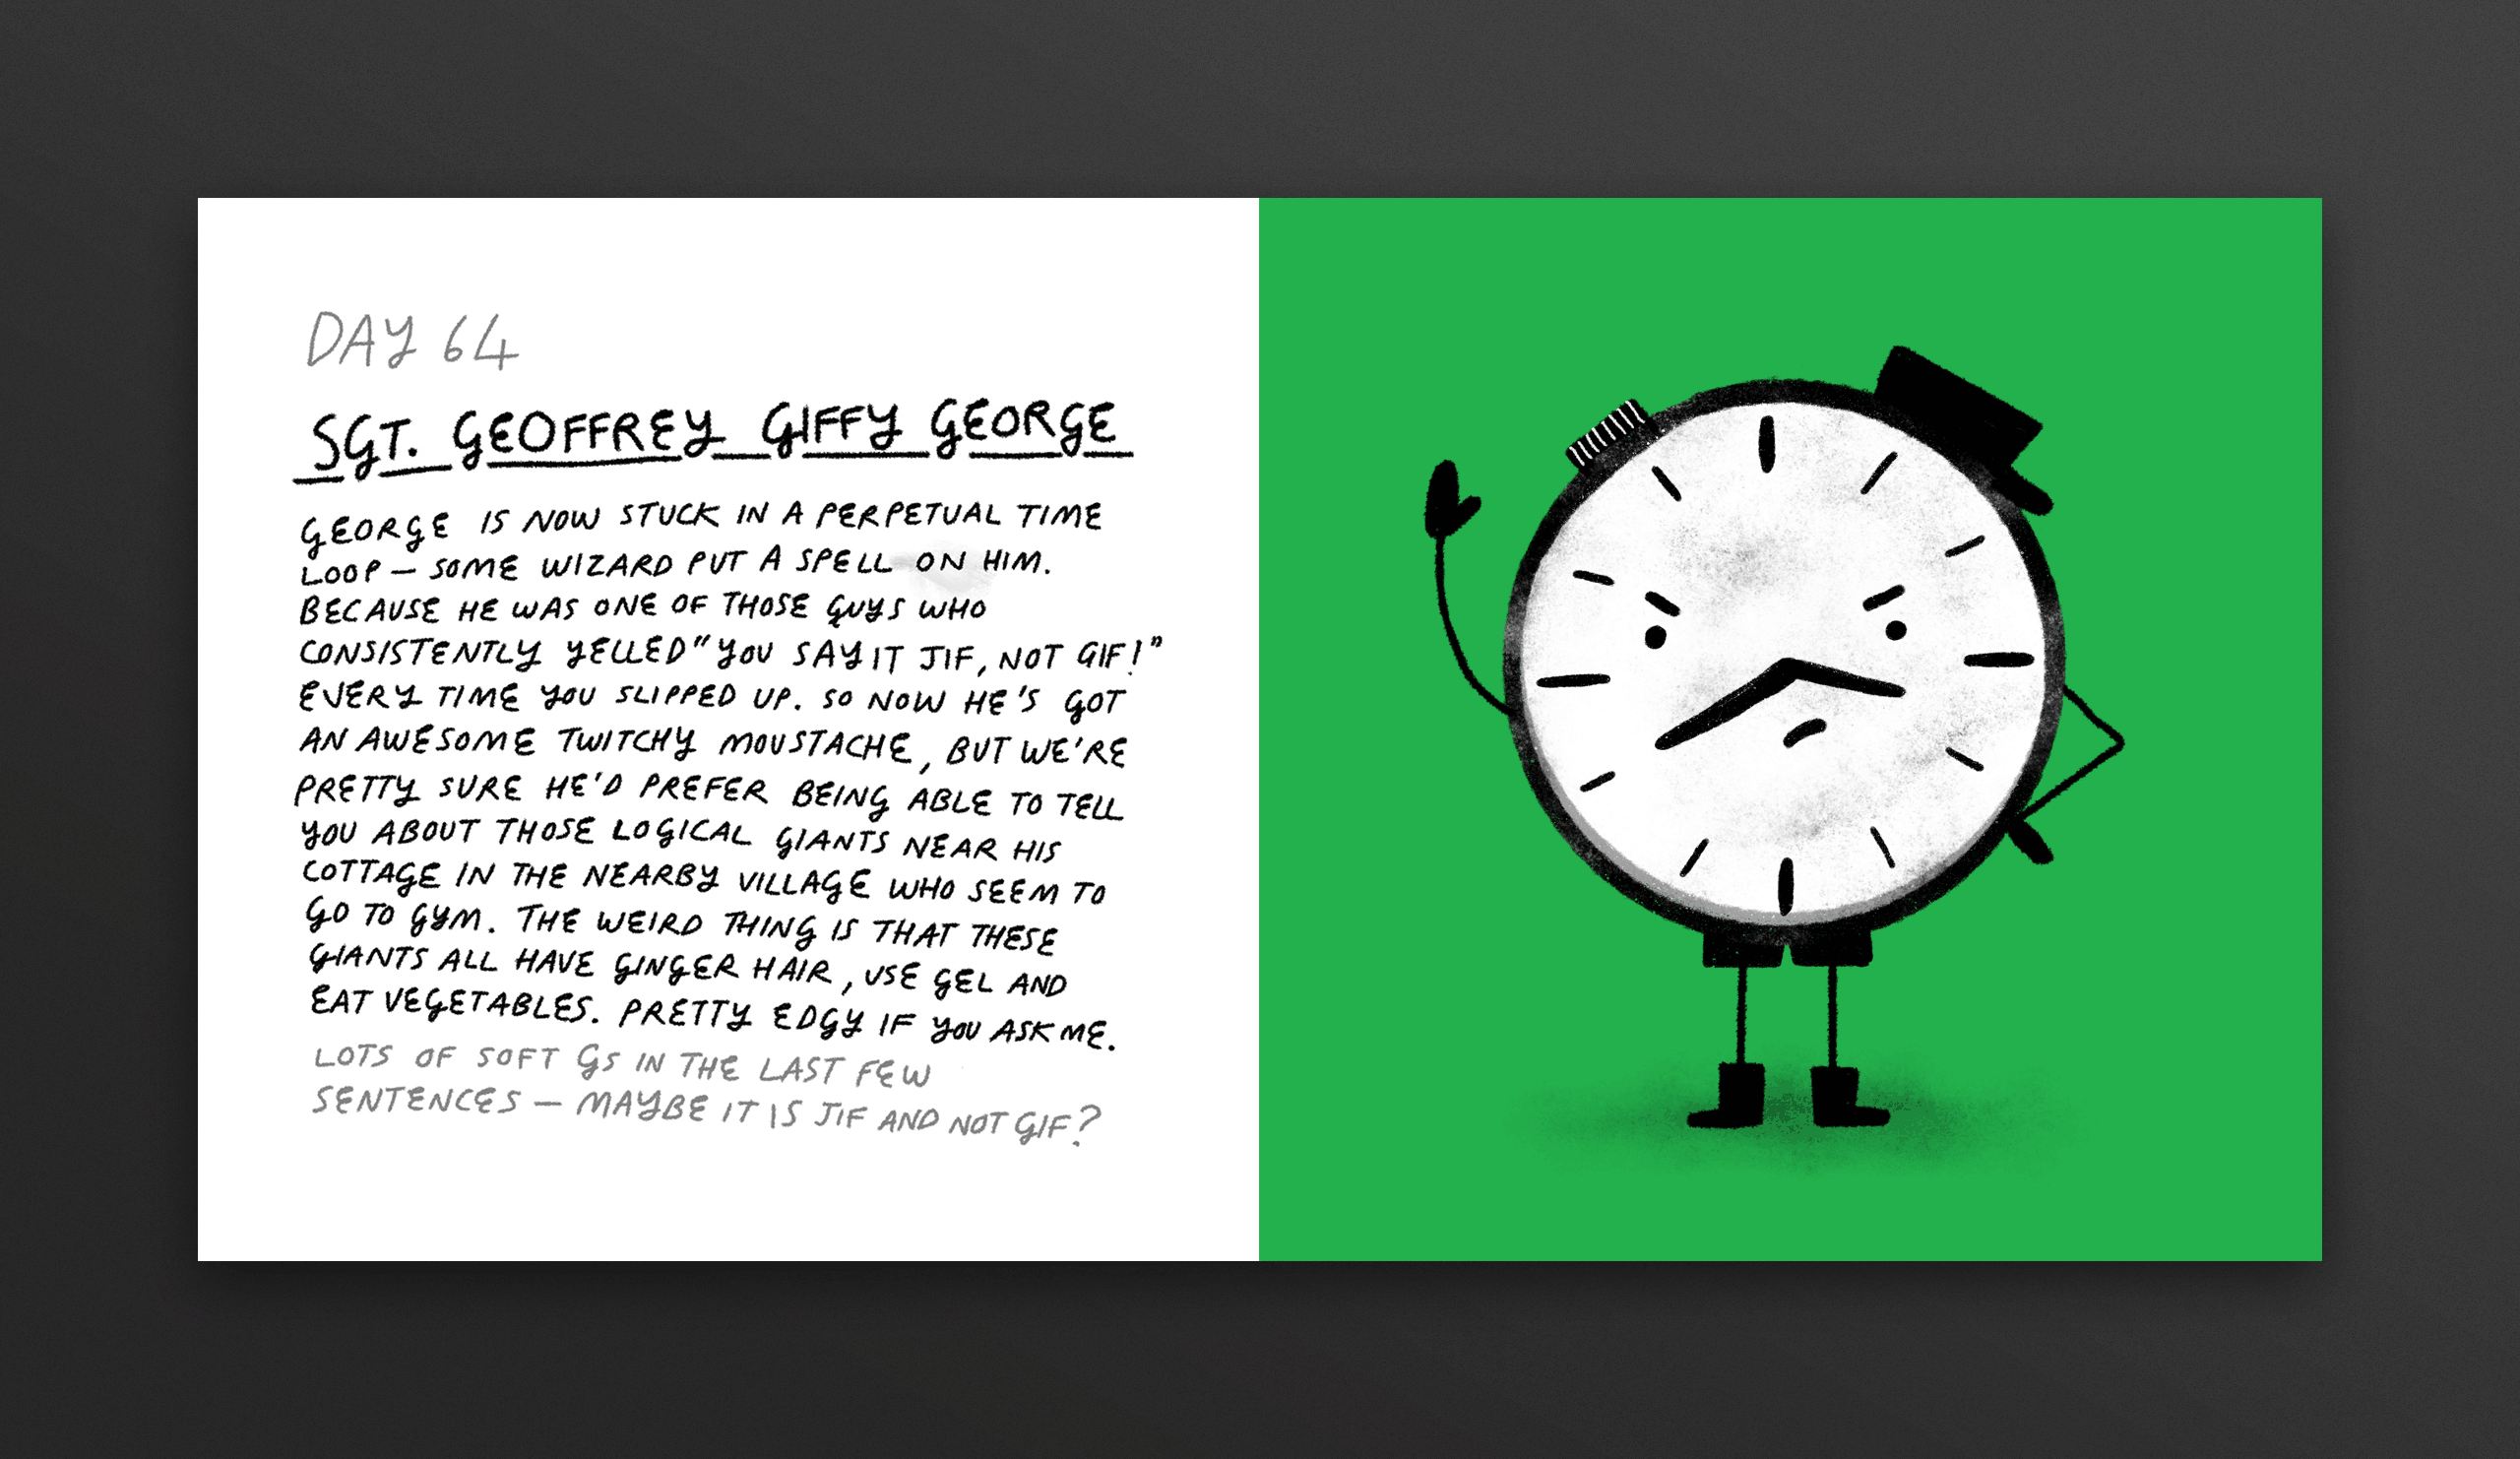 DAY 64
SGT. GEOFFREY GIFFY GEORGE
GEORGE IS NOW STUCK IN A PERPETUAL TIME
LOOP – SOME WIZARD PUT A SPELL ON HIM.
BECAUSE HE WAS ONE OF THOSE GUYS WHO
CONSISTENTLY YELLED "YOU SAY IT JIF, NOT GIF!"
EVERY TIME YOU SLIPPED UP. SO NOW HE'S GOT
AN AWESOME TWITCHY MOUSTACHE, BUT WE'RE
PRETTY SURE HE'D PREFER BEING ABLE TO TELL
YOU ABOUT THOSE LOGICAL GIANTS NEAR HIS
COTTAGE IN THE NEARBY VILLAGE WHO SEEM TO
GO TO GYM. THE WEIRD THING IS THAT THESE
GIANTS ALL HAVE GINGER HAIR, USE GEL AND
EAT VEGETABLES. PRETTY EDGY IF YOU ASK ME.
LOTS OF SOFT GS IN THE LAST FEW
SENTENCES – MAYBE IT IS JIF AND NOT GIF?